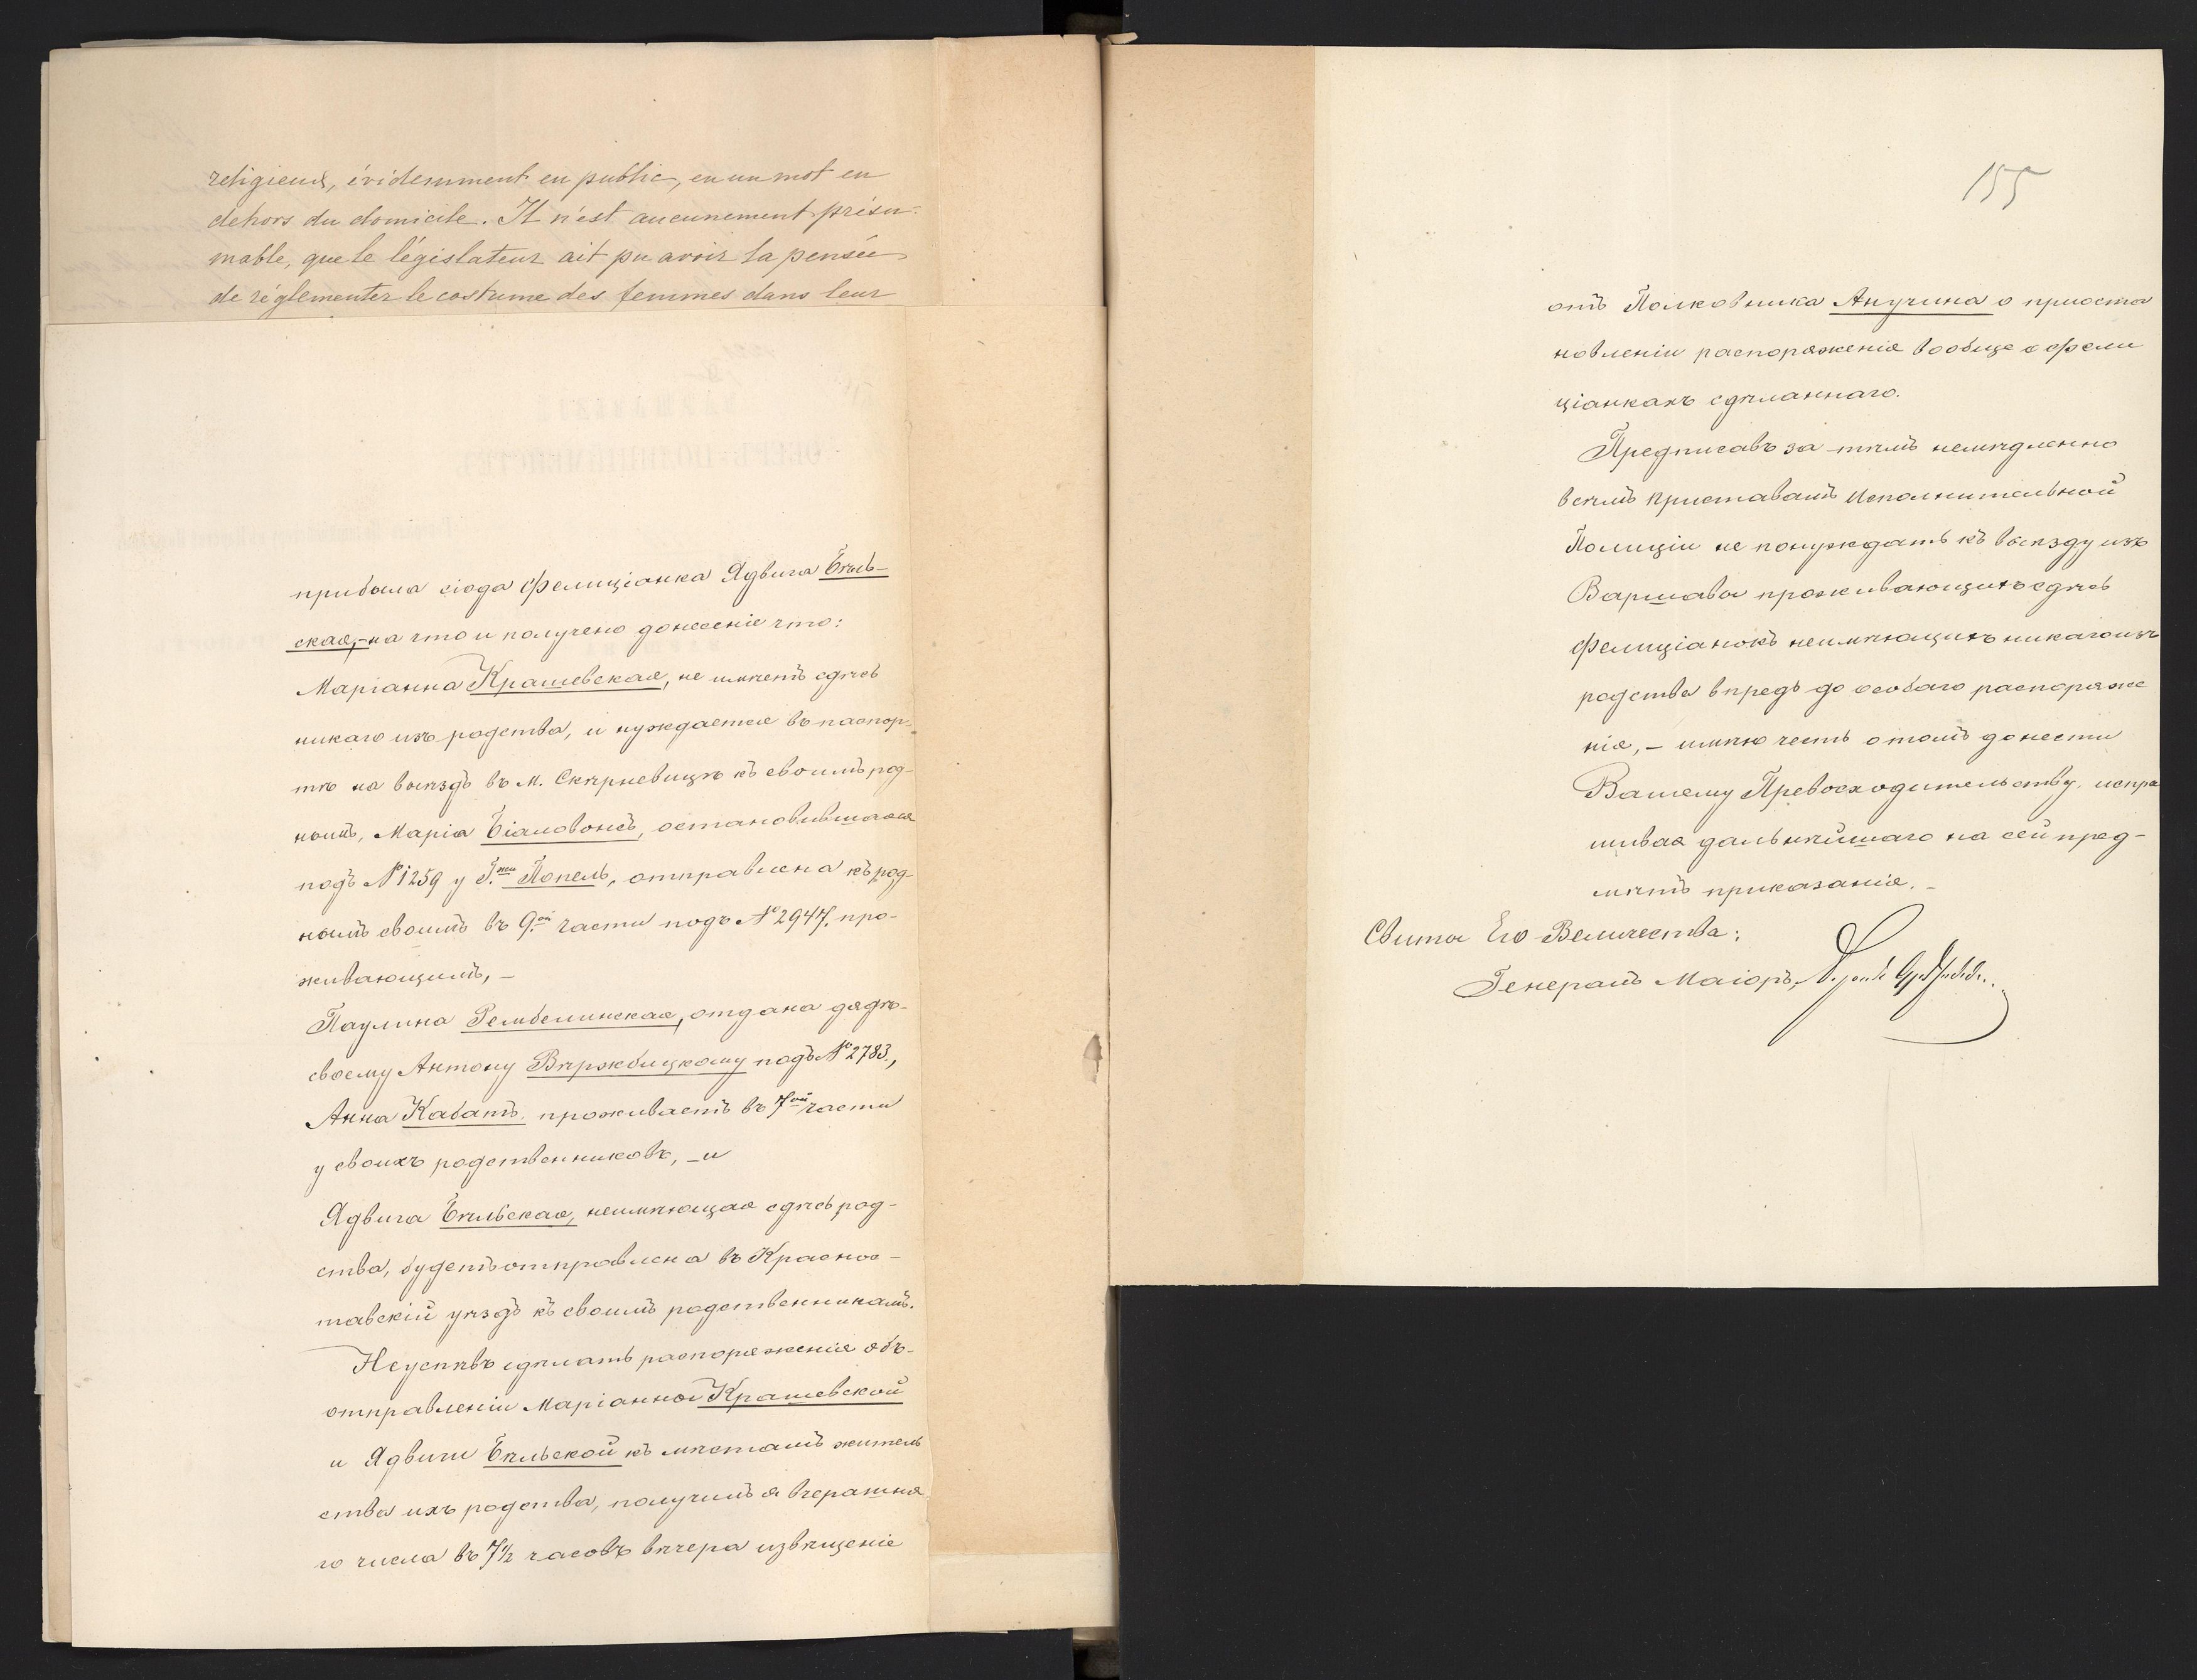 religieux, évidemment en public, en un mot en
dehors du domicile. Il n'est aucunement présu-
mable, que le législateur ait pu avoir la pensée
de réglementer le costume des femmes dans leur
прибыла сюда Фелиціанка Ядвига Бѣль-
ская,- на что и получено донесеніе что:
Маріанна Крашевская, не имѣетъ сдѣсь
никаго изъ родства, и нуждается въ паспор-
тѣ на выѣздъ въ М. Скѣрневицѣ къ своимъ род-
нымъ, Марія Біаловонсъ, остановившаяся
подъ № 1259 у Г.жи Попель, отправлена къ род-
нымъ своимъ въ 9.ой части подъ № 2947. про-
живающимъ, -
Паулина Рембелинская, отдана дядѣ-
своему Антону Вѣржбицкому подъ № 2783.,
Анна Кабатъ проживаетъ въ 7ой части
у своихъ родственниковъ, - и
Ядвига Бѣльская, неимѣющая сдѣсь род-
ства, будетъ отправлена въ Красно-
тавскій уѣздъ къ своимъ родственникамъ.
Неуспѣвъ сдѣлать распоряженія объ-
отправленіи Маріанны Крашевской
и Ядвиги Бѣльской къ мѣстамъ житель
ства ихъ родства, получилъ я вчерашня
го числа въ 7½ часовъ вѣчера извѣщеніе
155
отъ Полковника Анучина о пріоста
новленіи распоряженія вообще о Фели
ціанкахъ сдѣланнаго.
Предписавъ за-тѣмъ немѣдленно
всѣмъ Приставамъ Исполнительной
Полиціи не понуждать къ выѣзду изъ
Варшавы проживающихъ сдѣсь
Фелиціанокъ неимѣющихъ никаго изъ
родства впредь до особаго распоряже
нія, - имѣю честь о томъ донести
Вашему Превосходительству, испра
шивая дальнѣйшаго на сей пред-
мѣтъ приказанія. -
Свиты Его Величества:
Генералъ Маіоръ,